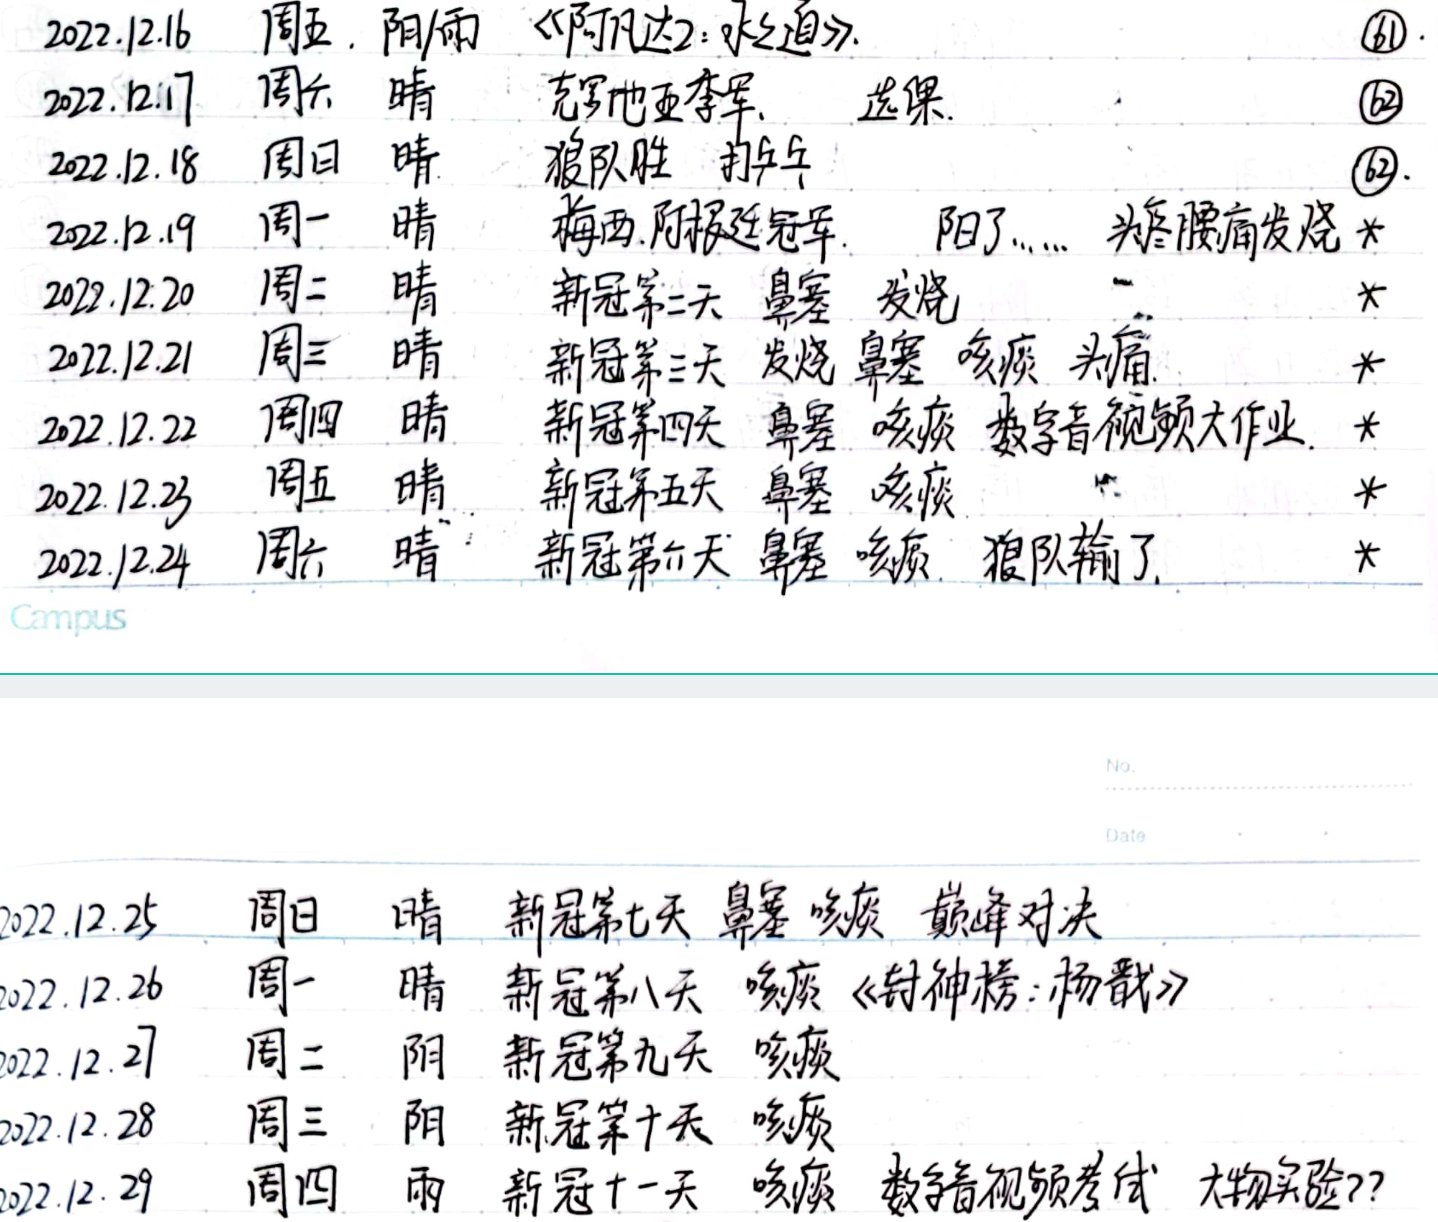 2022.12.16 周五. 阳/雨 《阿凡达2:水之道》. 61.
2022.12.17 周六 晴 克罗地亚季军. 选课. 62
2022.12.18 周日 晴 狼队胜 打乒乓 62.
2022.12.19 周一 晴 梅西.阿根廷冠军. 阳了...... 头疼腰痛发烧 *
2022.12.20 周二 晴 新冠第二天 鼻塞 发烧 *
2022.12.21 周三 晴 新冠第三天 发烧 鼻塞 咳痰 头痛. *
2022.12.22 周四 晴 新冠第四天 鼻塞 咳痰 数字音视频大作业. *
2022.12.23 周五 晴 新冠第五天 鼻塞 咳痰 *
2022.12.24 周六 晴 新冠第六天 鼻塞 咳痰. 狼队输了. *
Campus
No.
Date
2022.12.25 周日 晴 新冠第七天 鼻塞 咳痰 巅峰对决
2022.12.26 周一 晴 新冠第八天 咳痰 《封神榜:杨戬》
2022.12.27 周二 阴 新冠第九天 咳痰
2022.12.28 周三 阴 新冠第十天 咳痰
2022.12.29 周四 雨 新冠十一天 咳痰 数字音视频考试 大物实验??